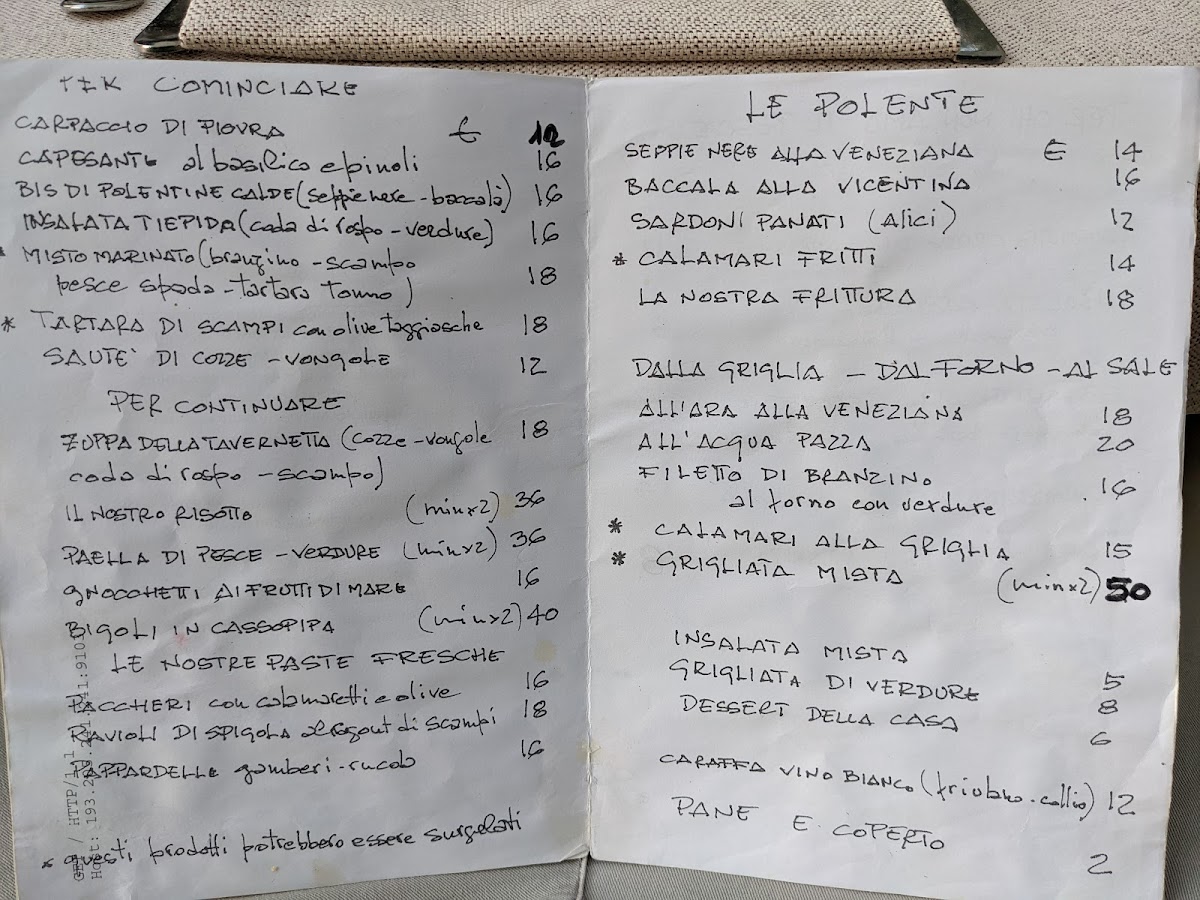 PER COMINCIARE
CARPACCIO DI PIOVRA € 12
CAPESANTE al basilico e pinoli 16
BIS DI POLENTINE CALDE (seppie nere - baccalà) 16
INSALATA TIEPIDA (coda di rospo - verdure) 16
* MISTO MARINATO (branzino - scampo
pesce spada - tartara tonno) 18
* TARTARA DI SCAMPI con olive taggiasche 18
SAUTE' DI COZZE - VONGOLE 12
PER CONTINUARE
ZUPPA DELLA TAVERNETTA (cozze - vongole 18
coda di rospo - scampo)
IL NOSTRO RISOTTO (min x 2) 36
PAELLA DI PESCE - VERDURE (min x 2) 36
GNOCCHETTI AI FRUTTI DI MARE 16
BIGOLI IN CASSOPIPA (min x 2) 40
LE NOSTRE PASTE FRESCHE
PACCHERI con calamaretti e olive 16
RAVIOLI DI SPIGOLA al ragout di scampi 18
PAPPARDELLE gamberi - rucola 16
* questi prodotti potrebbero essere surgelati
GET / HTTP/1.1
LE POLENTE
SEPPIE NERE ALLA VENEZIANA € 14
BACCALA ALLA VICENTINA 16
SARDONI PANATI (Alici) 12
* CALAMARI FRITTI 14
LA NOSTRA FRITTURA 18
DALLA GRIGLIA - DAL FORNO - AL SALE
ALL'ARA ALLA VENEZIANA 18
ALL'ACQUA PAZZA 20
FILETTO DI BRANZINO
al forno con verdure 16
* CALAMARI ALLA GRIGLIA 15
* GRIGLIATA MISTA (min x 2) 50
INSALATA MISTA 5
GRIGLIATA DI VERDURE 8
DESSERT DELLA CASA 6
CARAFFA VINO BIANCO (friulano - collio) 12
PANE E COPERTO 2